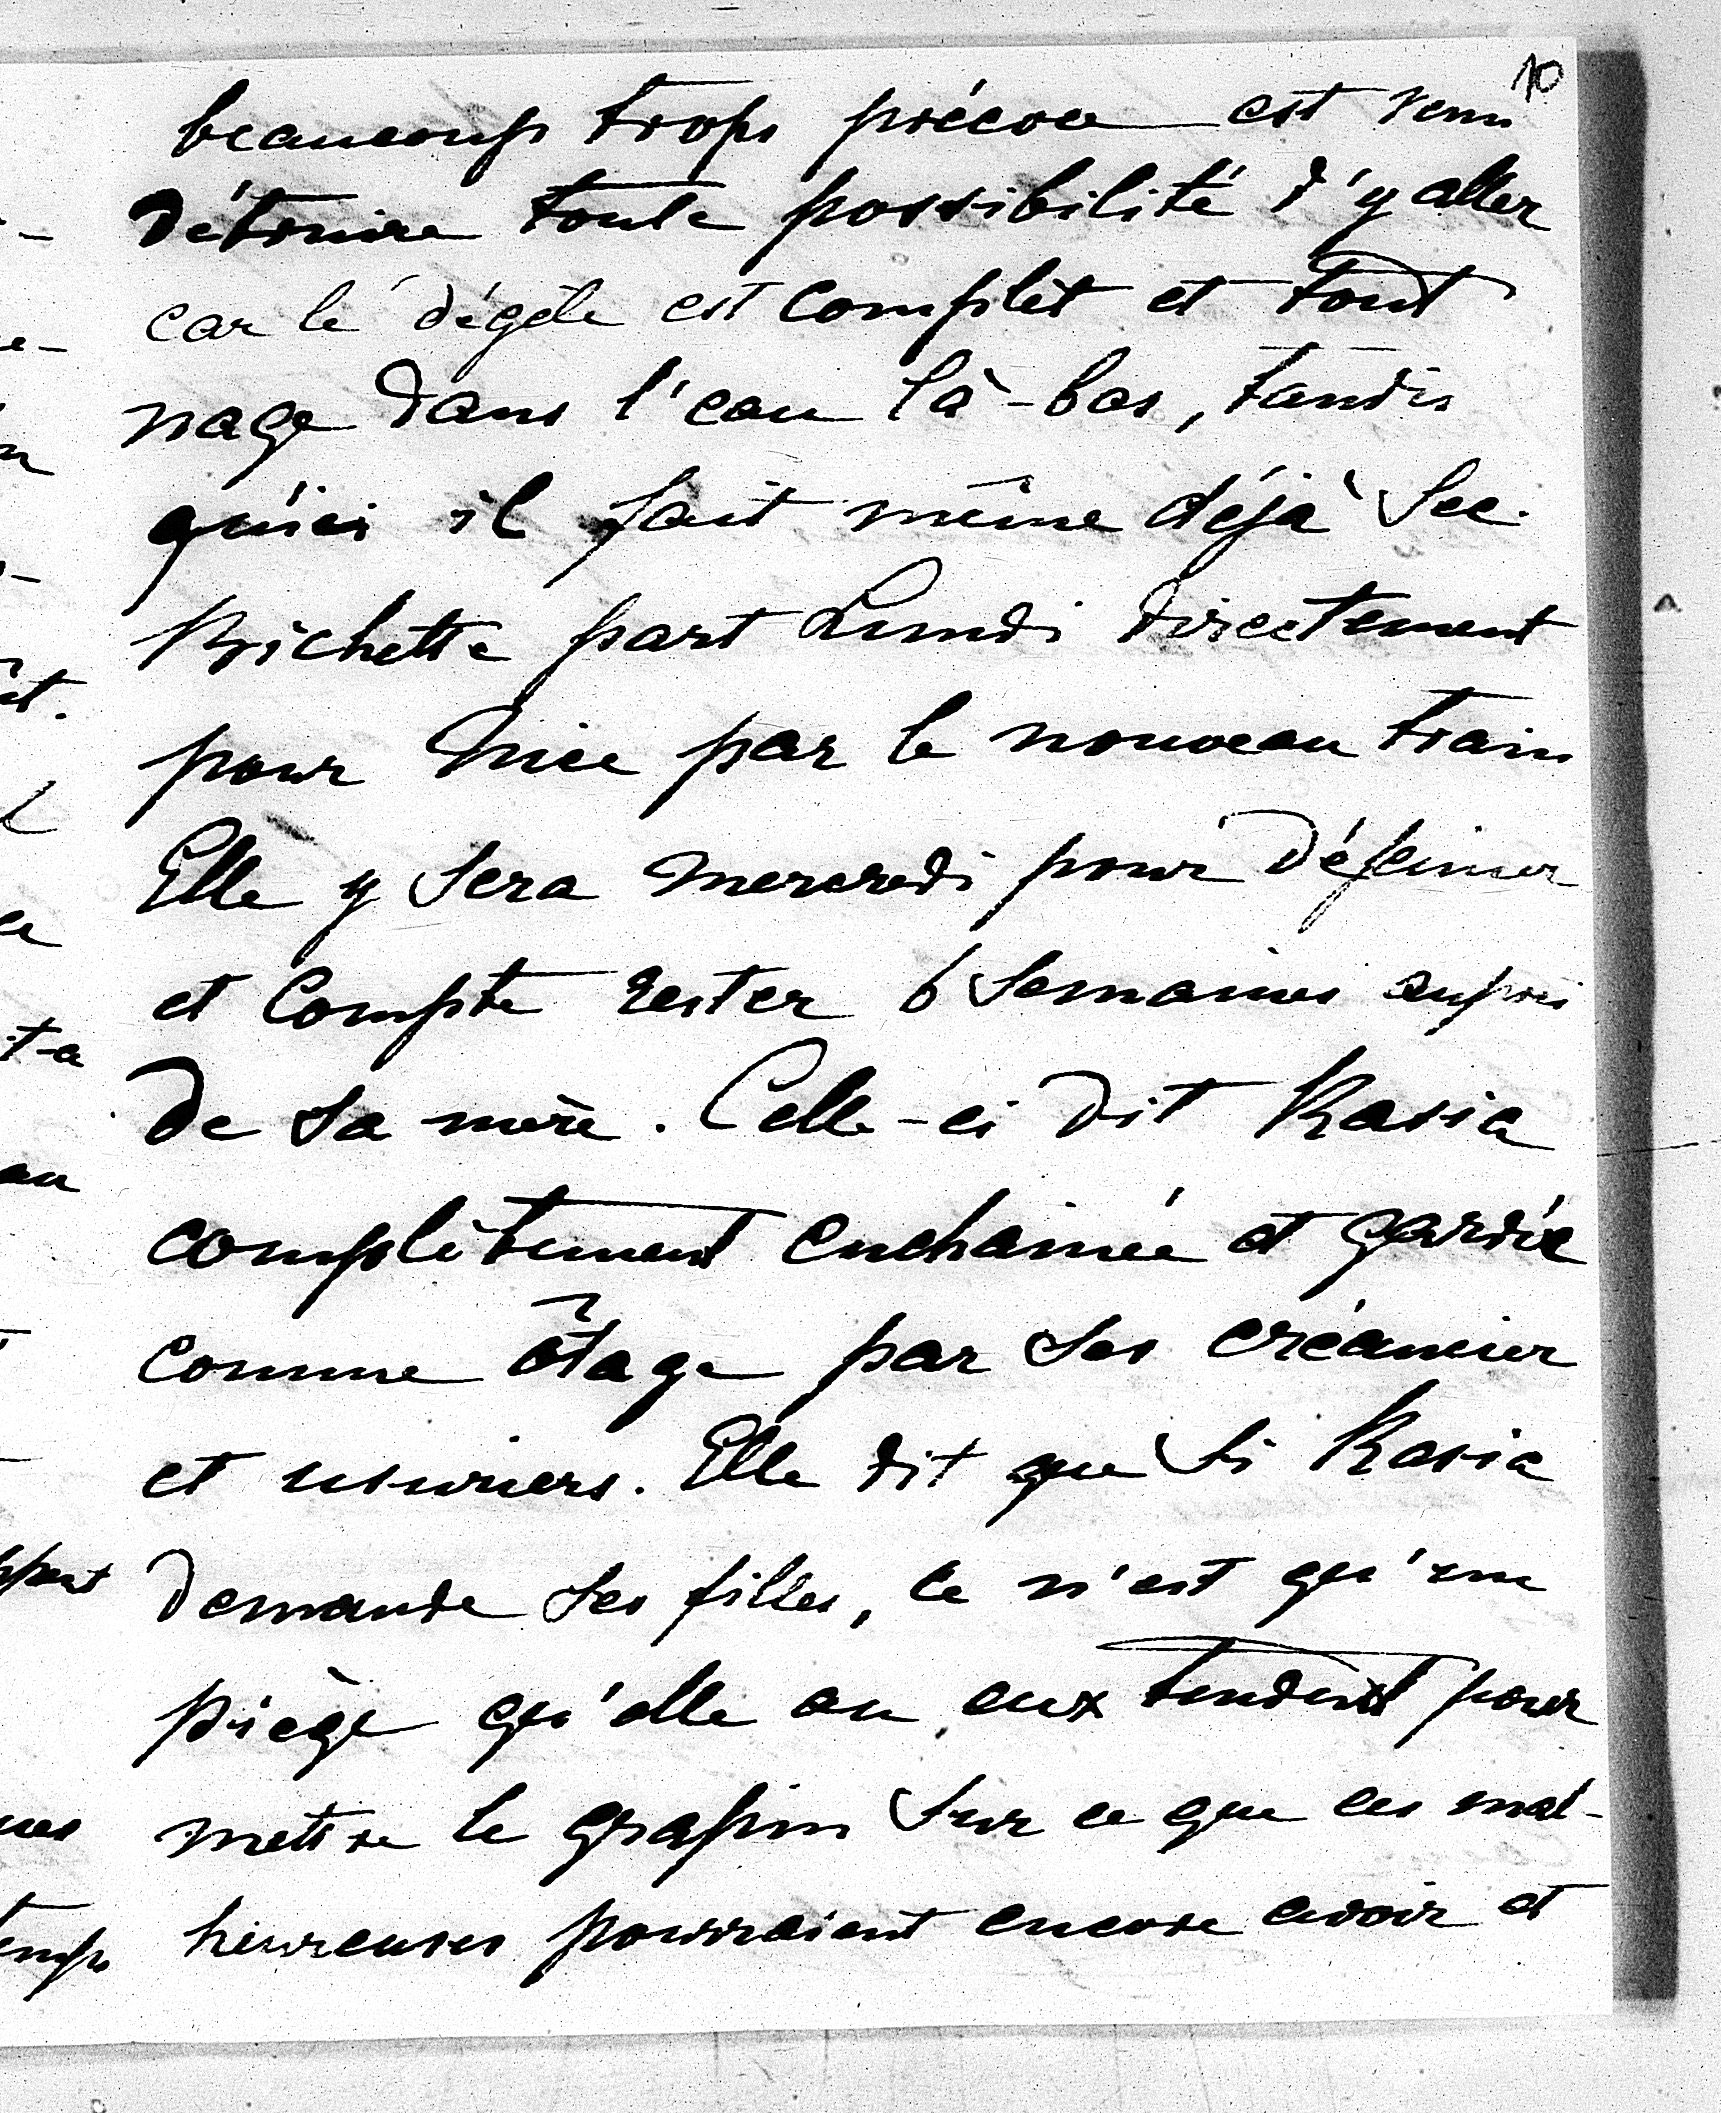 10
beaucoup trop précoce est venu
détruire toute possibilité d'y aller
car le dégèle est complèt et tout
nage dans l'eau là-bas, tandis
qu'ici il fait même déjà sec.
Bichette part Lundi directement
pour Nice par le nouveau train
Elle y sera Mercredi pour déjeuner
et compte rester 6 semaines auprès
de sa mère. Celle-ci dit Kasia
complètement enchaînée et gardée
comme ôtage par ses créancier
et usuriers. Elle dit que si Kasia
demande ses filles, ce n'est qu'un
piège qu'elle ou eux tendent pour
mettre le grapin sur ce que ces mal-
heureuses pourraient encore avoir et